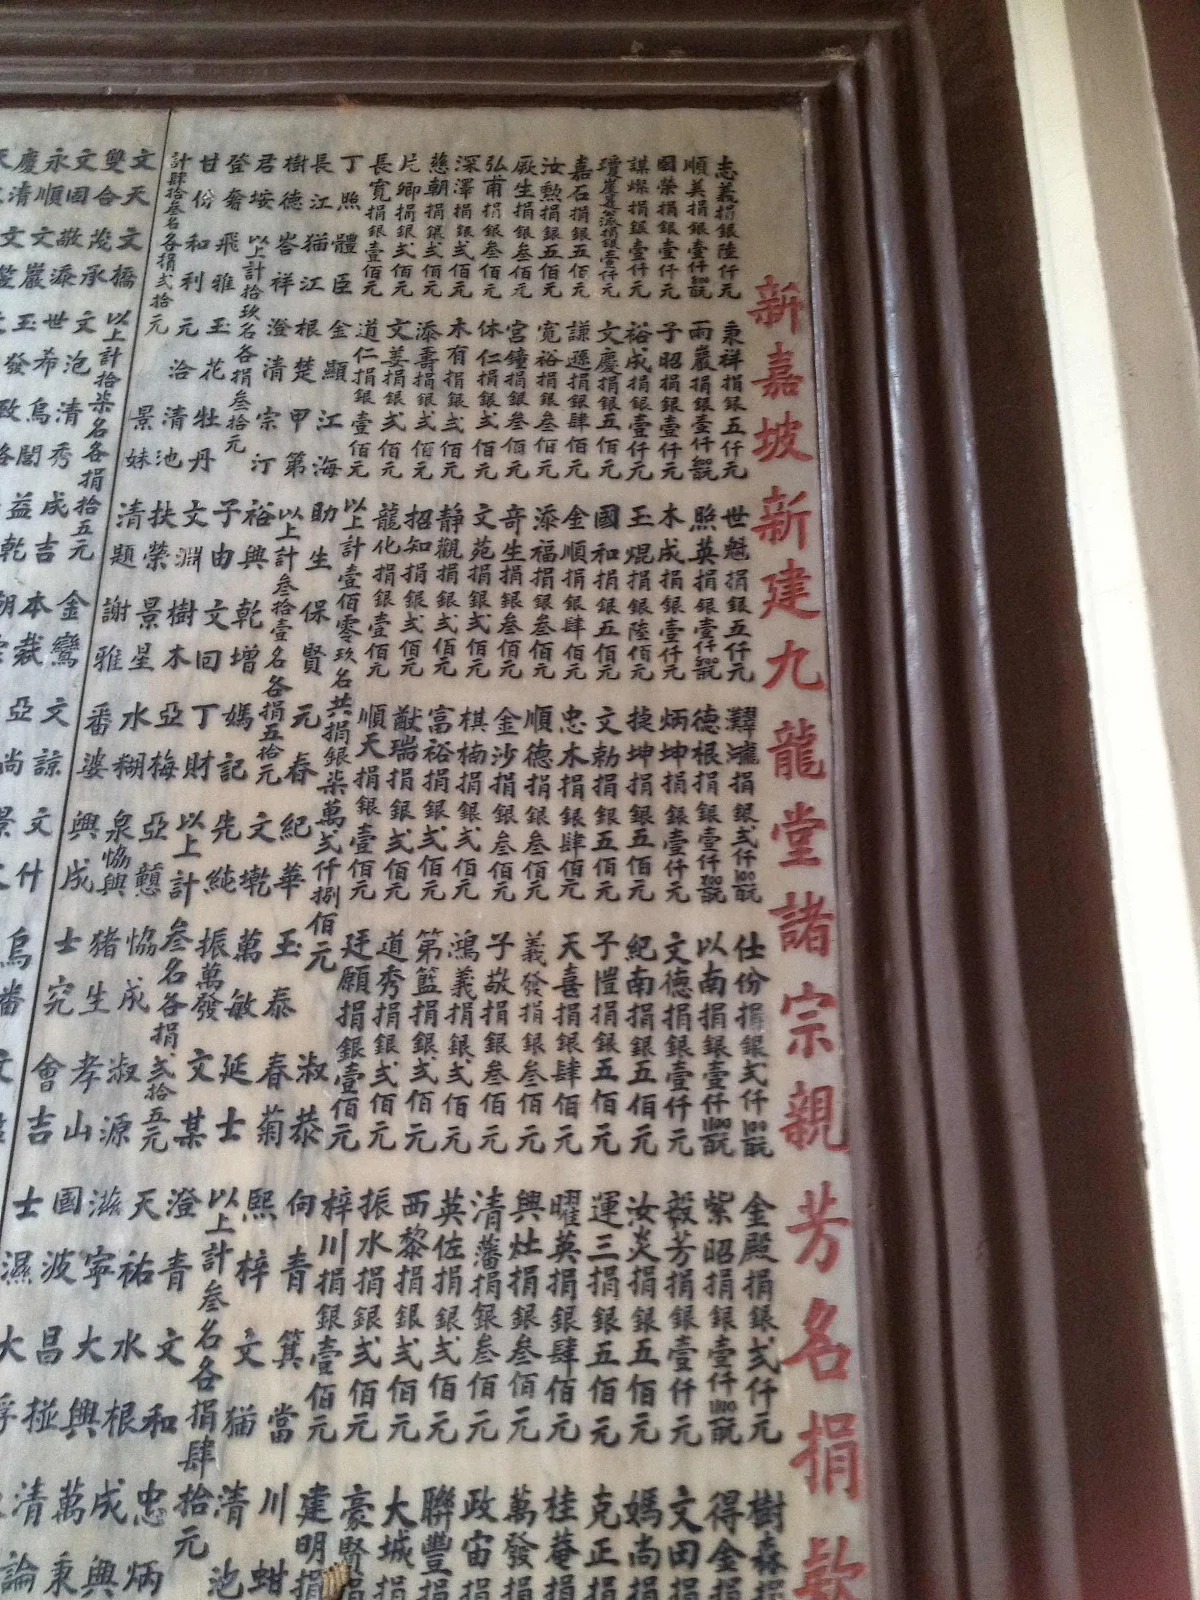 新嘉坡新建九龍堂諸宗親芳名捐款
志義捐銀陸仟元 秉祥捐銀五仟元 世魁捐銀五仟元 捐銀弍仟 仕份捐銀弍仟 金殿捐銀弍仟元 樹森捐
順美捐銀壹仟 兩嚴捐銀壹仟 照英捐銀壹仟 德根捐銀壹仟 以南捐銀壹仟 紫昭捐銀壹仟 得金捐
國榮捐銀壹仟元 子昭捐銀壹仟元 木成捐銀壹仟元 炳坤捐銀壹仟元 文德捐銀壹仟元 毅芳捐銀壹仟元 文田捐
謀燦捐銀壹仟元 裕成捐銀壹仟元 玉焜捐銀陸佰元 捷坤捐銀五佰元 紀南捐銀五佰元 汝炎捐銀五佰元 媽尚捐
捐銀壹仟元 文慶捐銀五佰元 國和捐銀五佰元 文勅捐銀五佰元 子愷捐銀五佰元 運三捐銀五佰元 克正捐
嘉石捐銀五佰元 謙遜捐銀肆佰元 金順捐銀肆佰元 忠木捐銀肆佰元 天喜捐銀肆佰元 曜英捐銀肆佰元 桂菴捐
汝勲捐銀五佰元 寬裕捐銀叁佰元 添福捐銀叁佰元 順德捐銀叁佰元 義發捐銀叁佰元 興灶捐銀叁佰元 萬發捐
厥生捐銀叁佰元 宮鐘捐銀叁佰元 奇生捐銀叁佰元 金沙捐銀叁佰元 子敬捐銀叁佰元 清藩捐銀叁佰元 政宙捐
弘甫捐銀叁佰元 休仁捐銀弍佰元 文苑捐銀弍佰元 棋楠捐銀弍佰元 鴻義捐銀弍佰元 英佐捐銀弍佰元 聯豐捐
深澤捐銀弍佰元 木有捐銀弍佰元 靜觀捐銀弍佰元 富裕捐銀弍佰元 第籃捐銀弍佰元 西黎捐銀弍佰元 大城捐
慈朝捐銀弍佰元 添壽捐銀弍佰元 招知捐銀弍佰元 猷瑞捐銀弍佰元 道秀捐銀弍佰元 振水捐銀弍佰元 豪賢捐
片卿捐銀弍佰元 文姜捐銀弍佰元 龍化捐銀壹佰元 順天捐銀壹佰元 廷願捐銀壹佰元 梓川捐銀壹佰元 建明捐
長寬捐銀壹佰元 道仁捐銀壹佰元 以上計壹佰零玖名共捐銀柒萬弍仟捌佰元
丁照 體臣 金顯 江海 助生 保賢 元春 紀華 玉泰 淑恭 向青 箕當 川蚶
長江 猫江 根楚 甲第 以上計叁拾壹名各捐五拾元 文乾 萬敏 春菊 熙梓 文猫 清池
樹德 峇祥 澄清 宗汀 裕興 乾增 媽記 先純 振萬發 延士 以上計叁名各捐肆拾元
君垵 以上計拾玖名各捐叁拾元 子由 文回 丁財 以上計叁名各捐弍拾五元 文某 澄青 文和 忠炳
登奢 飛雅 玉花 牡丹 文淵 樹木 亞梅 亞戇 恊成 淑源 天祐 水根 成興
甘份 和利 元洽 清池 扶榮 景星 水糊 泉恊興 猪生 孝山 滋寧 大興 萬秉
計肆拾叁名各捐弍拾元 景妹 清題 謝雅 番婆 興成 士究 會吉 國波 昌椪 清論
文天 文橋 以上計拾柒名各捐拾五元 金鸞 文諒 文什 烏番 士濕
雙合 茂承 文泡 清秀 成吉 本裁 亞尚
文回 敬添 世希 烏閣 益乾
永順 文嚴 玉發
慶清 文笠